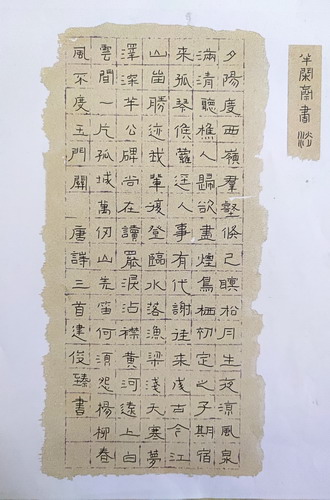 夕陽度西嶺羣壑倏已暝松月生夜涼風泉
滿清聽樵人歸欲盡煙鳥栖初定之子期宿
來孤琴候蘿逕人事有代謝往來成古今江
山留勝迹我輩復登臨水落漁梁淺天寒夢
澤深羊公碑尚在讀罷淚沾襟黃河遠上白
雲間一片孤城萬仞山羌笛何須怨楊柳春
風不度玉門關 唐詩三首建俊臻書
半閑齋書